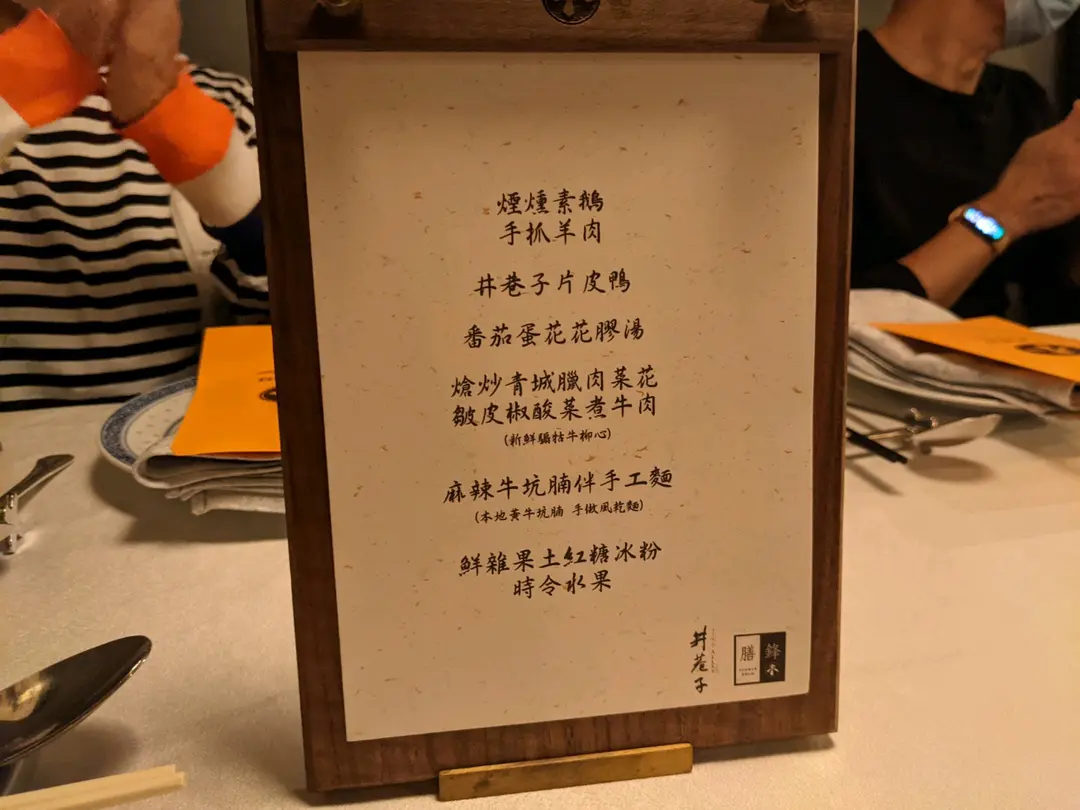 煙燻素鵝
手抓羊肉
井巷子片皮鴨
番茄蛋花花膠湯
熗炒青城臘肉菜花
皺皮椒酸菜煮牛肉
(新鮮騸牯牛柳心)
麻辣牛坑腩伴手工麵
(本地黃牛坑腩 手做風乾麵)
鮮雜果土紅糖冰粉
時令水果
井巷子
鋒
膳